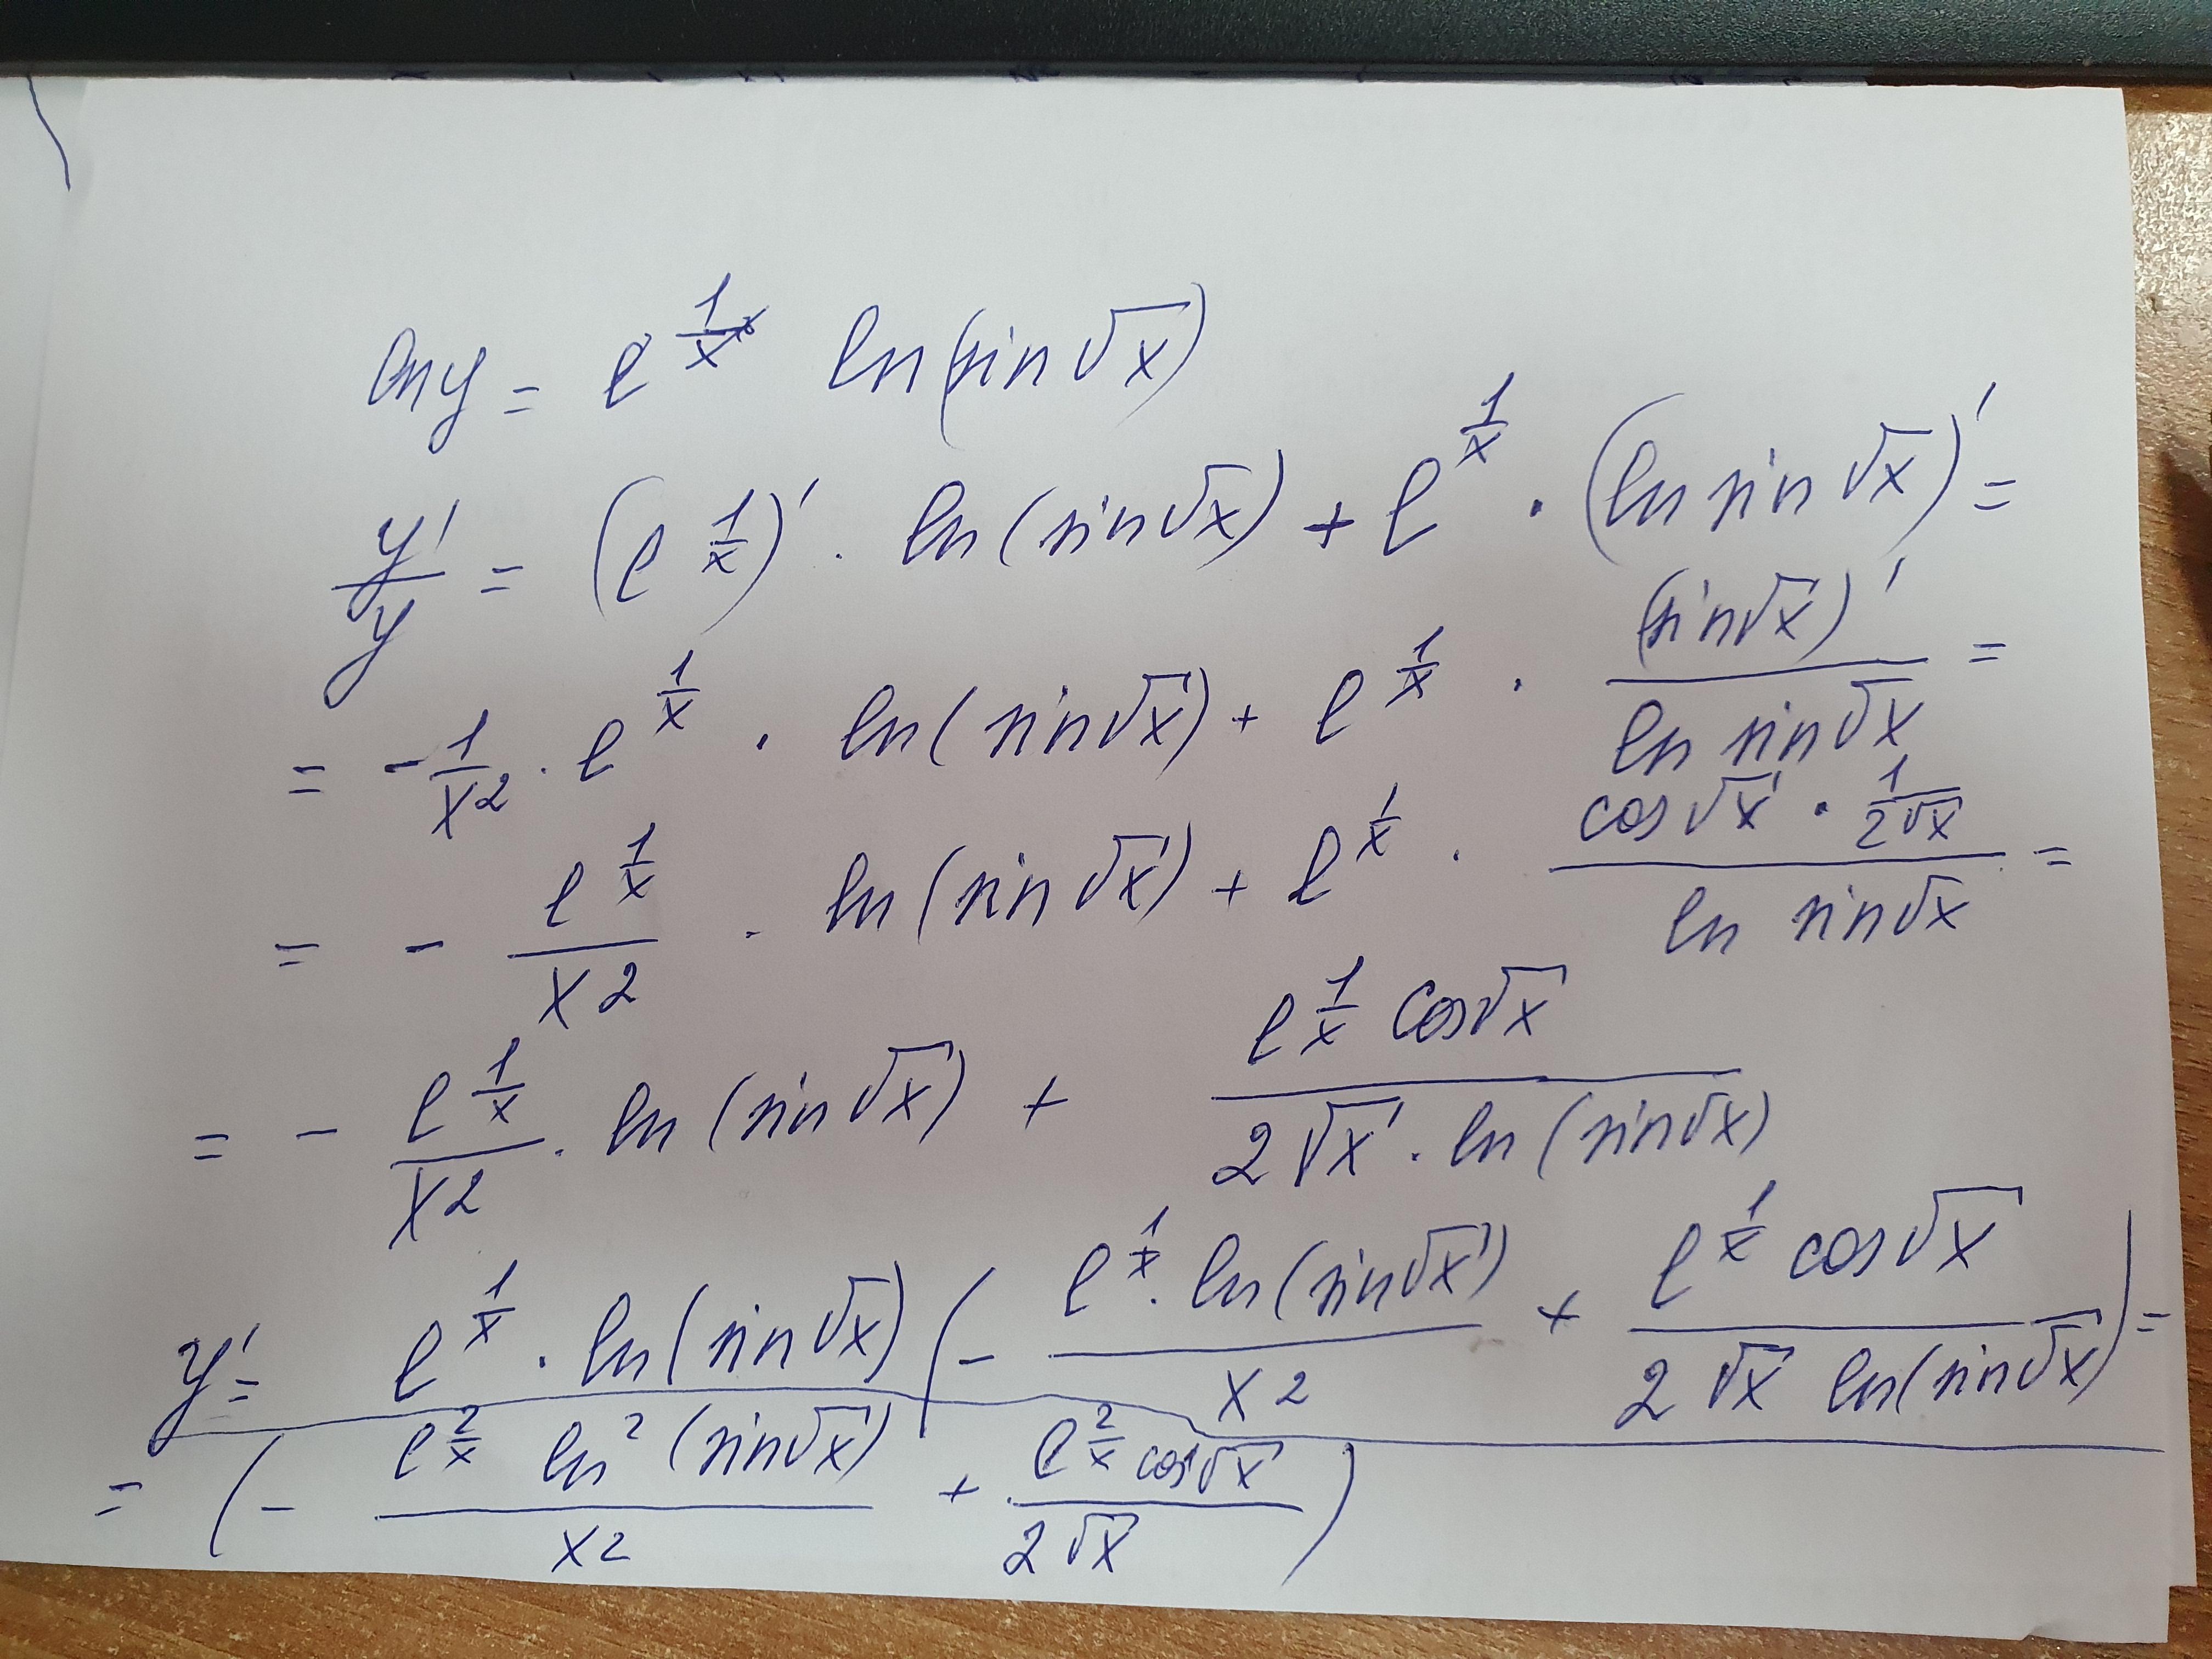 ln y = e^{\frac{1}{x}} ln(sin √x)
\frac{y'}{y} = (e^{\frac{1}{x}})' · ln(sin √x) + e^{\frac{1}{x}} · (ln sin √x)' =
= -\frac{1}{x^2} · e^{\frac{1}{x}} · ln(sin √x) + e^{\frac{1}{x}} · \frac{(sin √x)'}{ln sin √x} =
= - \frac{e^{\frac{1}{x}}}{x^2} · ln(sin √x) + e^{\frac{1}{x}} · \frac{cos √x · \frac{1}{2√x}}{ln sin √x} =
= - \frac{e^{\frac{1}{x}}}{x^2} · ln(sin √x) + \frac{e^{\frac{1}{x}} cos √x}{2√x · ln(sin √x)}
y' = e^{\frac{1}{x}} · ln(sin √x) (- \frac{e^{\frac{1}{x}} · ln(sin √x)}{x^2} + \frac{e^{\frac{1}{x}} cos √x}{2√x ln(sin √x)}) =
= (- \frac{e^{\frac{2}{x}} ln^2 (sin √x)}{x^2} + \frac{e^{\frac{2}{x}} cos √x}{2√x})